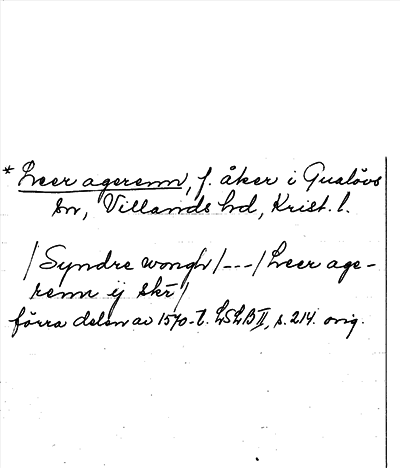 * Leer agerenn, f. åker i Gualövs
sn, Villands hd, Krist. l.
/Syndre wongh/---/Leer age-
renn ij skr/
förra delen av 1570-t. LSLB II, s. 214. orig.